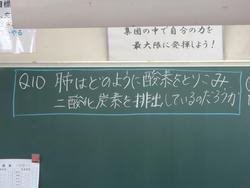 目標
集団の中で自分の力を
最大限に発揮しよう!
Q10 肺はどのように酸素をとりこみ
二酸化炭素を排出しているのだろうか